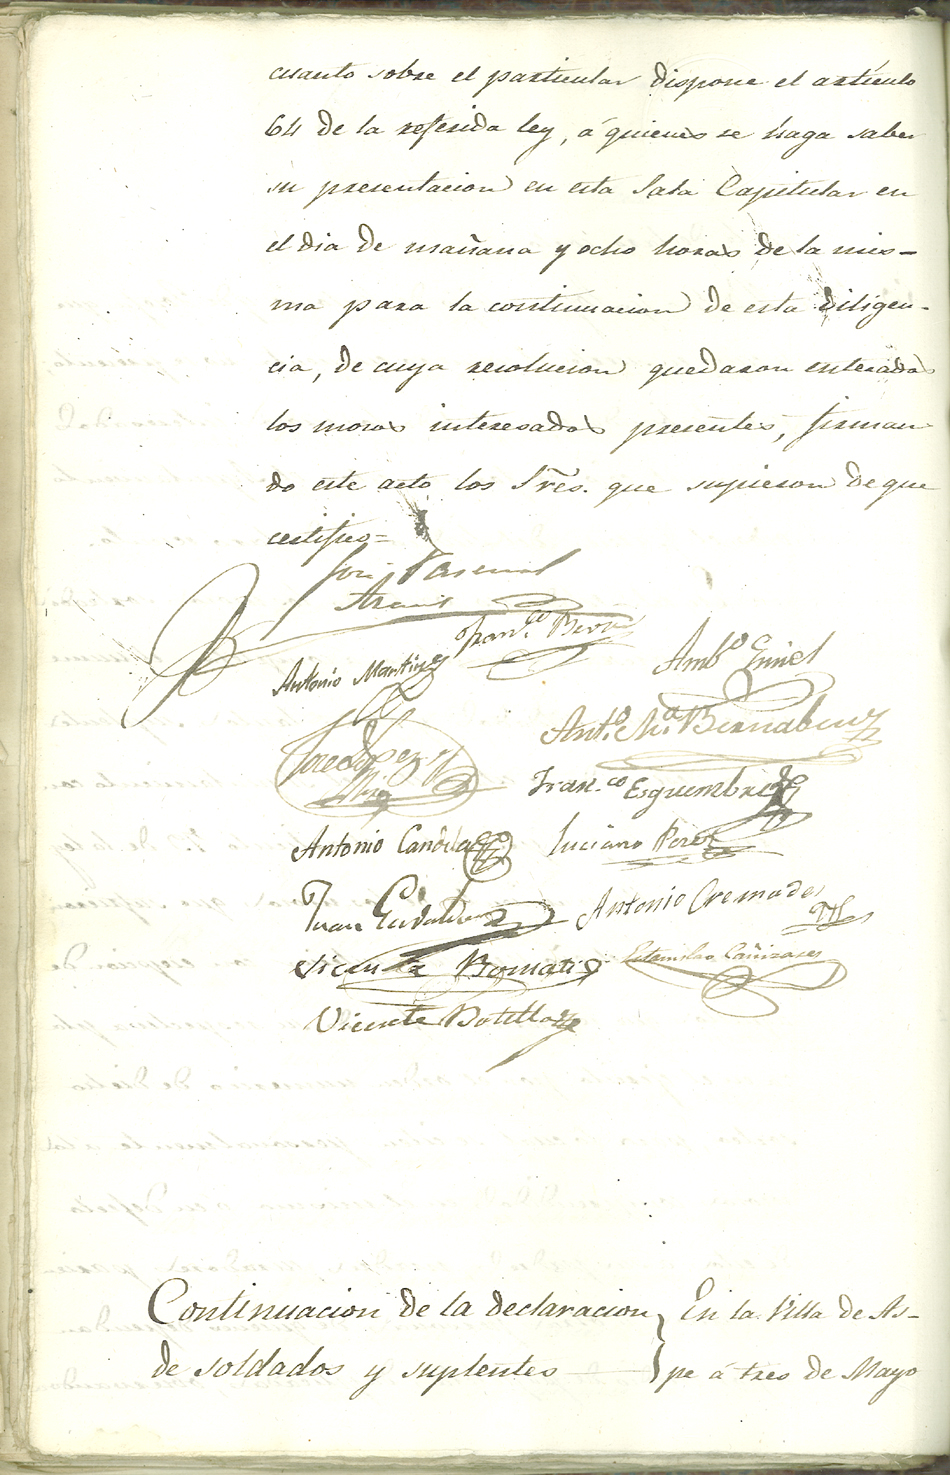 cuanto sobre el particular dispone el artículo
64 de la referida ley, á quienes se haga saber
su presentacion en esta Sala Capitular en
el dia de mañana y ocho horas de la mis-
ma para la continuacion de esta diligen-
cia, de cuya resolucion quedaron enterados
los mozos interesados presentes, firman
do este acto los Sres. que supieron de que
certifico=
José Pascual
Fran.co
Antonio Martinez
Amb.o
Ant.o M.a Bernabeu
Fran.co Esquembre
Antonio Candela
Luciano Perez
Juan
Antonio Cremades
Vicente Bomati
Estanislao Cañizares
Vicente Botella
Continuacion de la declaracion
de soldados y suplentes
En la Villa de As-
pe á tres de Mayo